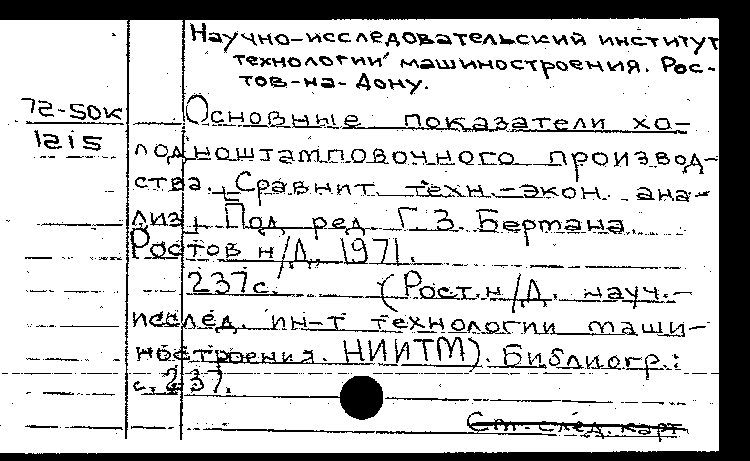 Научно-исследовательский институт
технологии машиностроения. Рос-
тов-на-Дону.
72-50к
1215
Основные показатели хо-
лодноштамповочного производ-
ства. [Сравнит. техн.-экон. ана-
лиз]. Под ред. Г. З. Бертана.
Ростов н/Д, 1971.
237с. (Рост.н/Д. науч.-
исслед. ин-т технологии маши-
ностроения. НИИТМ). Библиогр.:
с. 237.
См. след. карт